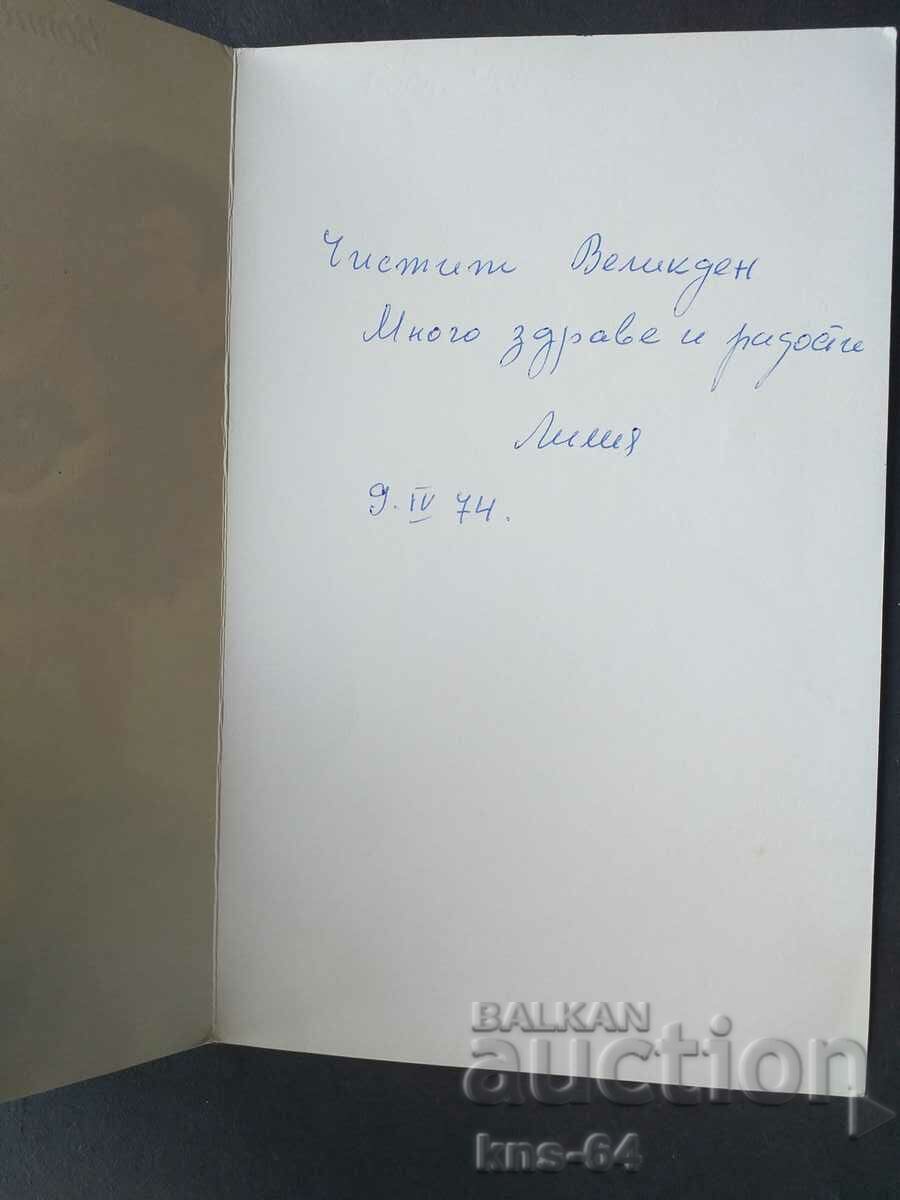 Чистит Великден
Много здраве и радости
Лилия
9. IV 74.
BALKAN
auction
kns-64